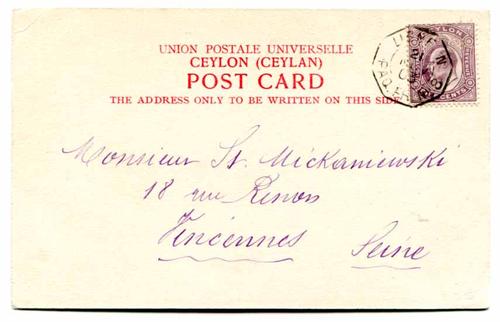 UNION POSTALE UNIVERSELLE
CEYLON (CEYLAN)
POST CARD
THE ADDRESS ONLY TO BE WRITTEN ON THIS SIDE
LIGNE N
PAQ. FR.
CEYLON
CENTS
Monsieur St. Mickaniewski
18 rue Renon
Vincennes Seine